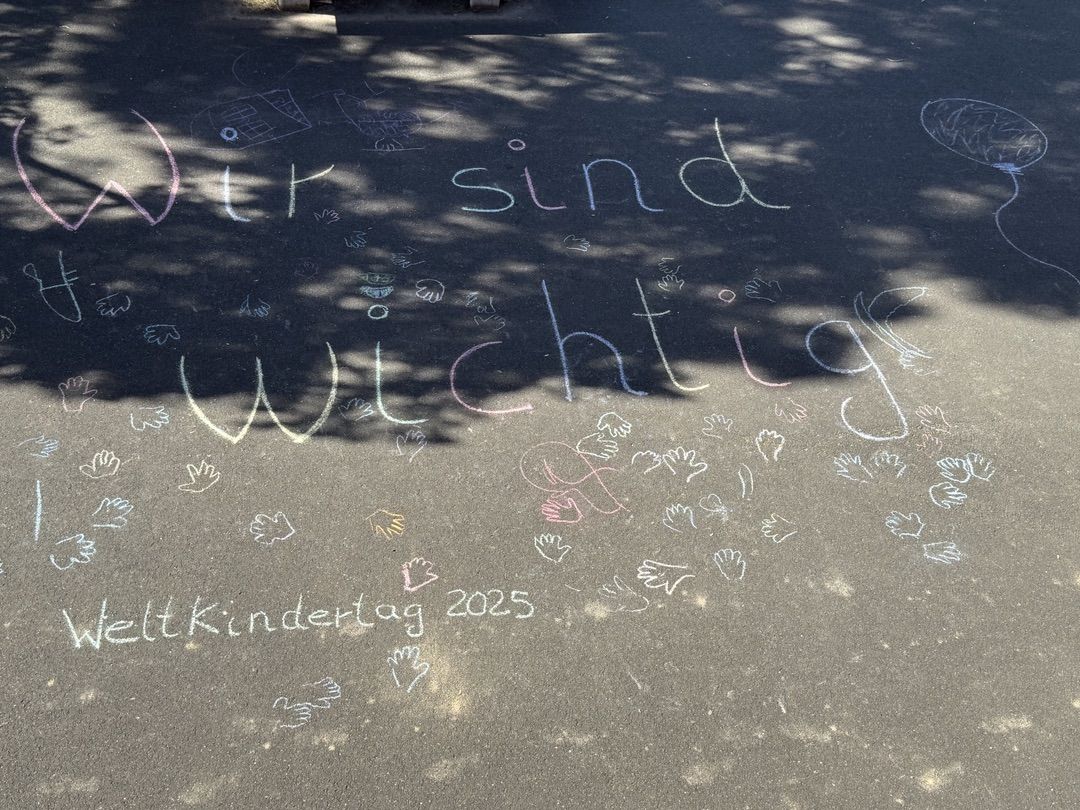 Wir sind
wichtig
WeltKindertag 2025